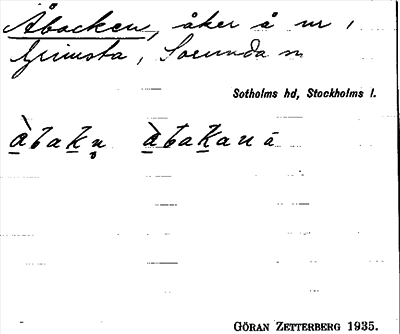 Åbacken, åker å nr 1
Grimsta, Sorunda sn
Sotholms hd, Stockholms l.
GÖRAN ZETTERBERG 1935.